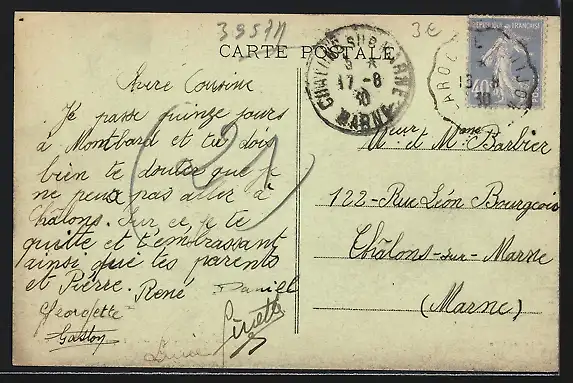 3951N
3€
CARTE POSTALE
REPUBLIQUE FRANÇAISE
CHALONS SUR MARNE
9 *
17-8
30
MARNE
16-8
30
40
Chère Cousine
Je passe quinze jours
à Montbard et tu dois
bien te douter que je
ne peux pas aller à
Châlons. Sur ce, je te
quitte et t'embrassant
ainsi que tes parents
et Pierre. René Daniel
Georgette
Gaston
21
Mr et Mme Barbier
122-Rue Léon Bourgeois
Châlons-sur-Marne
(Marne)